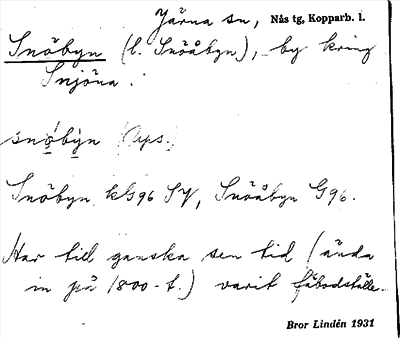 Järna sn, Nås tg, Kopparb. l.
Snöbyn (l. Snöåbyn), by kring
Snjöna.
snö̀býn (Ups.)
Snöbyn kG96 SV, Snöåbyn G96.
Har till ganska sen tid (ända
in på 1800-t.) varit fäbodställe.
Bror Lindén 1931